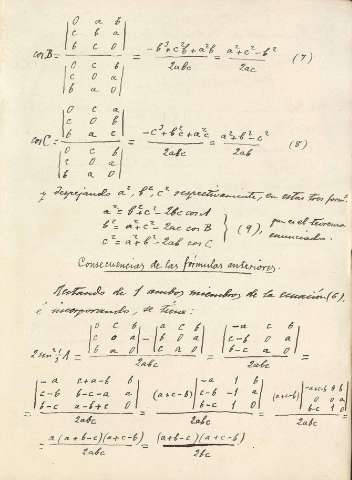 cos B = | 0 a b ; c b a ; b c 0 | / | 0 c b ; c 0 a ; b a 0 | = (-b³+c²b+a²b) / 2abc = (a²+c²-b²) / 2ac (7)
cos C = | 0 c a ; c 0 b ; b a c | / | 0 c b ; c 0 a ; b a 0 | = (-c³+b²c+a²c) / 2abc = (a²+b²-c²) / 2ab (8)
y despejando a², b², c² respectivamente, en estas tres form.ˢ
a² = b²+c²-2bc cos A
b² = a²+c²-2ac cos B } (9), que es el teorema
c² = a²+b²-2ab cos C enunciado.
Consecuencias de las fórmulas anteriores.
Restando de 1 ambos miembros de la ecuación (6),
é incorporando, se tiene:
2 sen² ½ A = ( | 0 c b ; c 0 a ; b a 0 | - | a c b ; b 0 a ; c a 0 | ) / 2abc = | -a c b ; c-b 0 a ; b-c a 0 | / 2abc =
= | -a c+a-b b ; c-b b-c-a a ; b-c a-b+c 0 | / 2abc = (a+c-b) | -a 1 b ; c-b -1 a ; b-c 1 0 | / 2abc = (a+c-b) | -a+c-b 0 b ; 0 0 a ; b-c 1 0 | / 2abc =
= a(a+b-c)(a+c-b) / 2abc = (a+b-c)(a+c-b) / 2bc